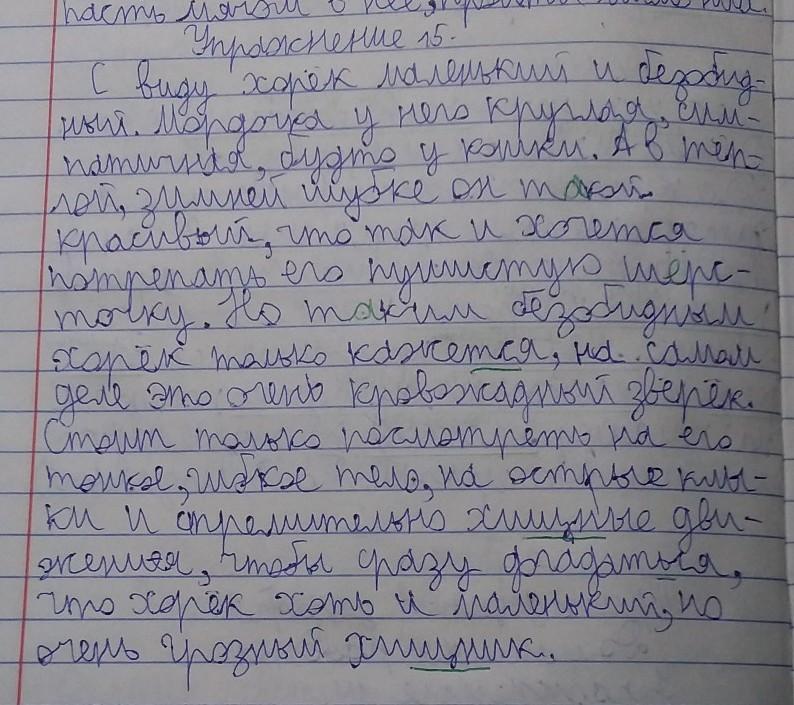 пасть мячом в неё,
Упражнение 15.
С виду хорёк маленький и безобид-
ный. Мордочка у него круглая, сим-
патичная, будто у кошки. А в тёп-
лой, зимней шубке он такой
красивый, что так и хочется
потрепать его пушистую шёрс-
точку. Но таким безобидным
хорёк только кажется, на самом
деле это очень кровожадный зверёк.
Стоит только посмотреть на его
тонкое, гибкое тело, на острые клы-
ки и стремительно хищные дви-
жения, чтобы сразу догадаться,
что хорёк хоть и маленький, но
очень грозный хищник.